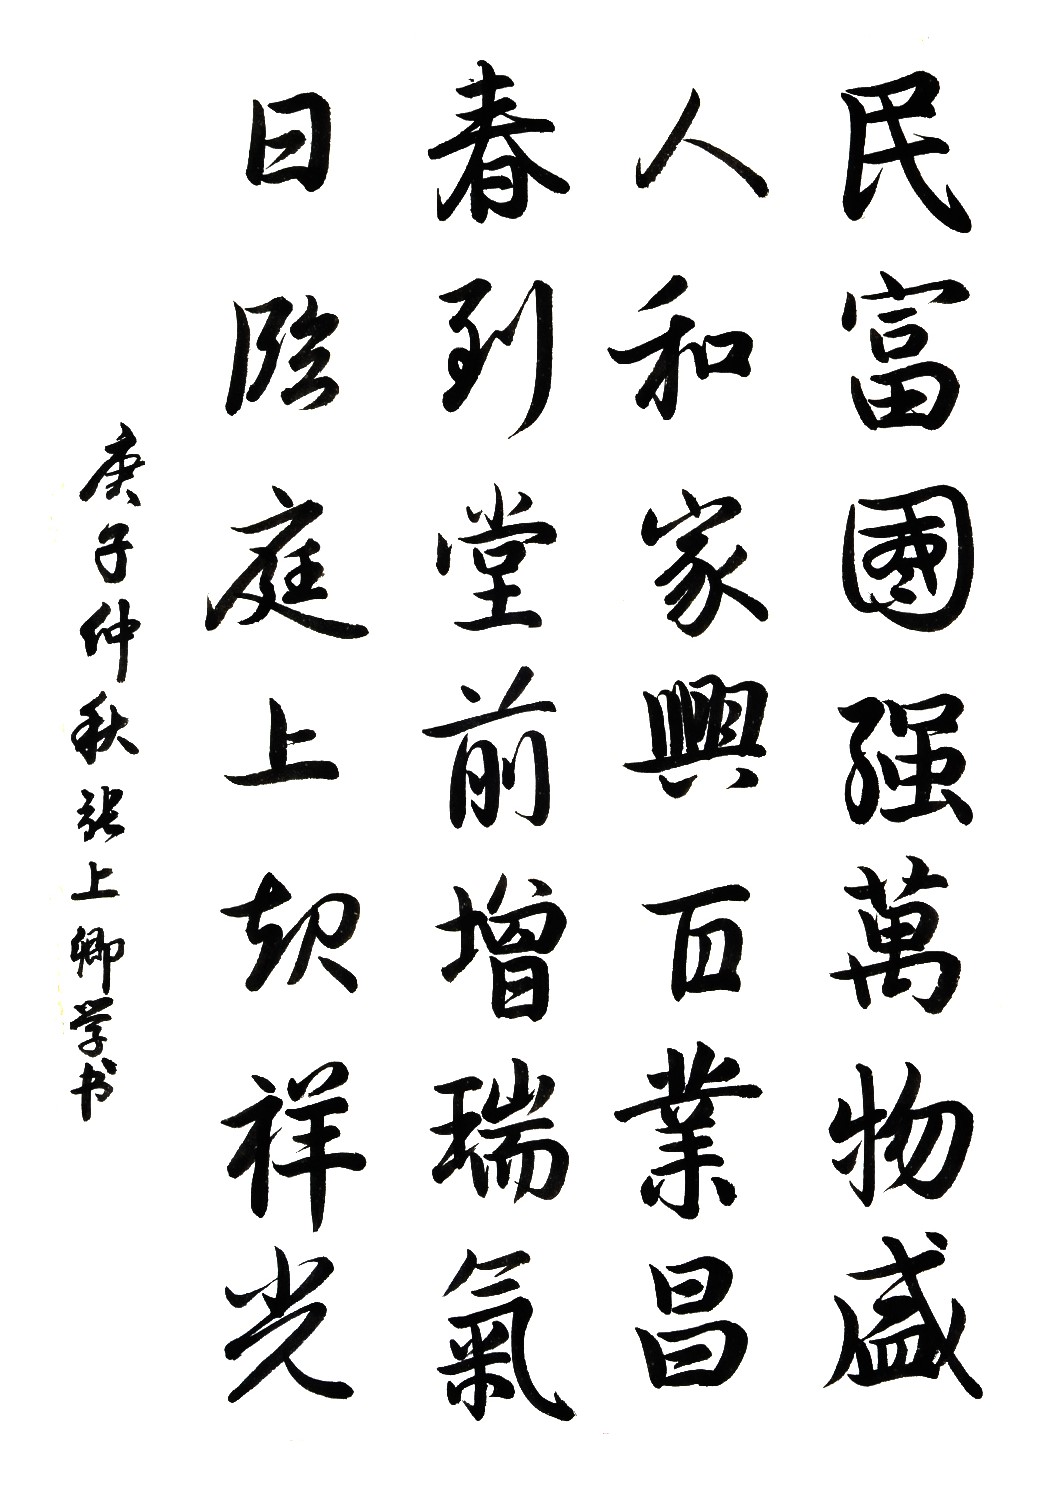 民富國强萬物盛
人和家興百業昌
春到堂前增瑞氣
日臨庭上祥光
庚子仲秋張上卿学书